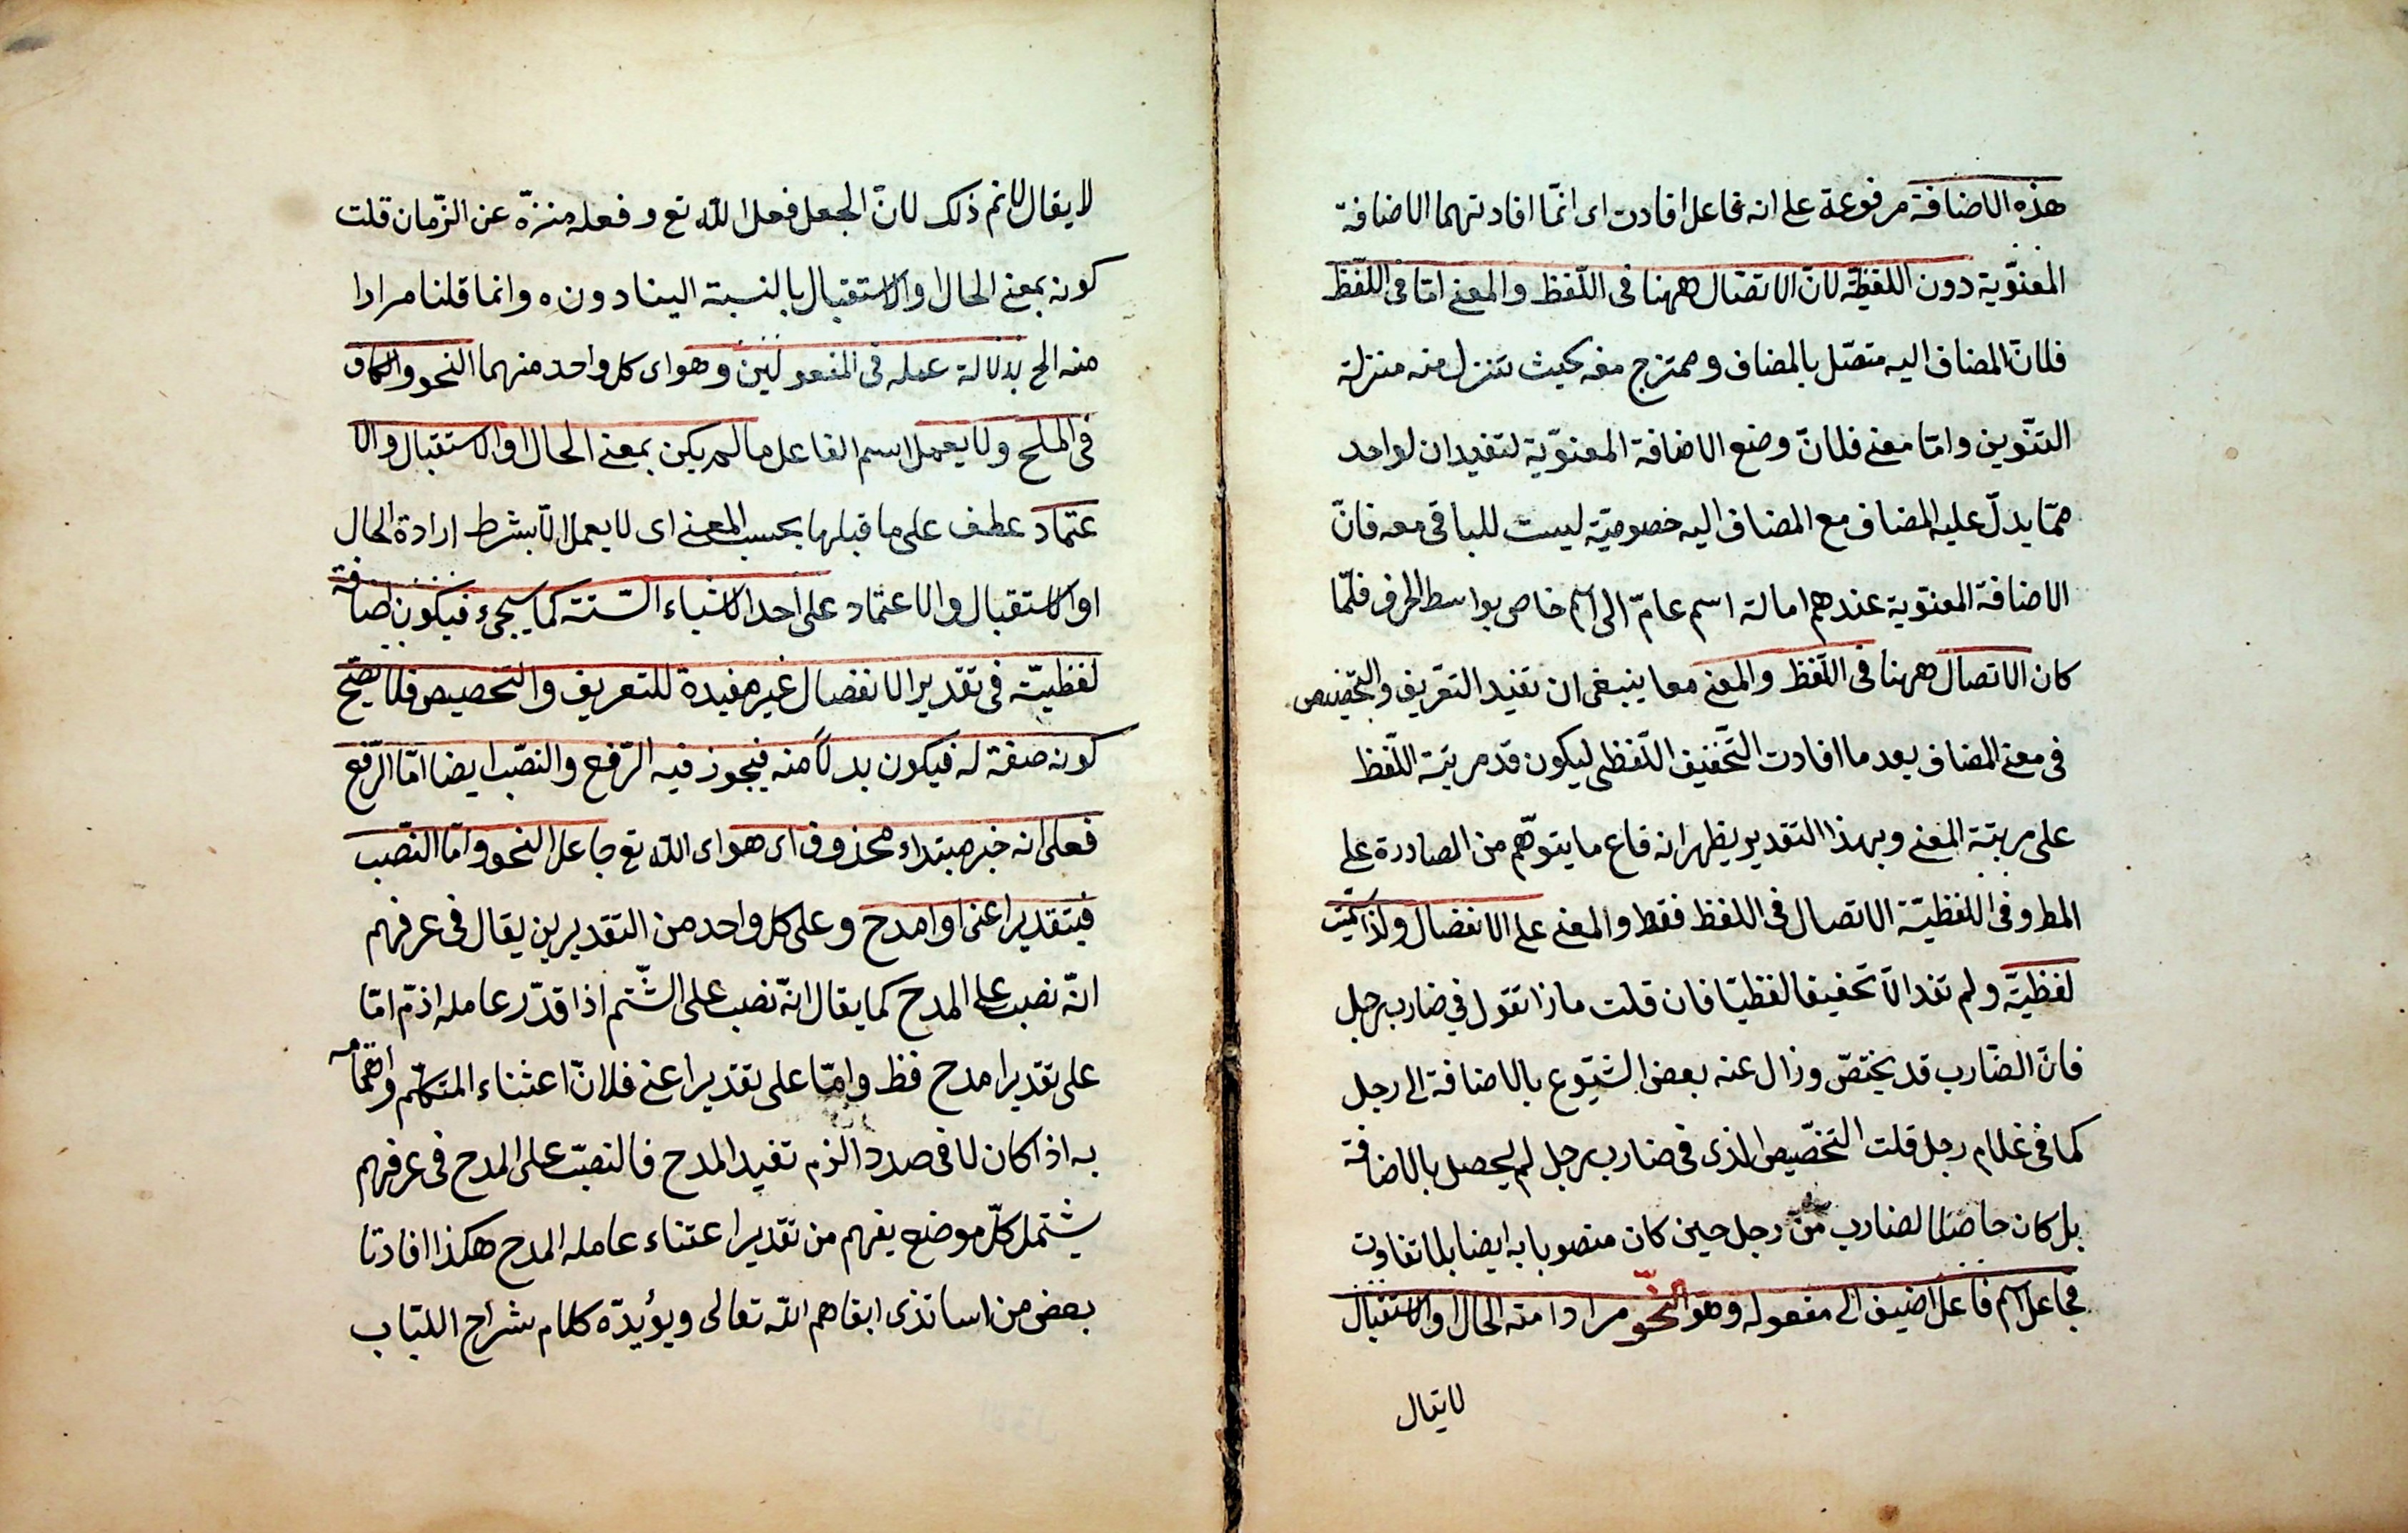 هذه الاضافة مرفوعة على انه فاعل افادت اى انما افادتهما الاضافة
المعنوية دون اللفظية لان الاتصال ههنا فى اللفظ والمعنى اما فى اللفظ
فلان المضاف اليه متصل بالمضاف وممتزج معه بحيث تنزل منه منزلة
التنوين واما معنى فلان وضع الاضافة المعنوية لتفيد ان لواحد
مما يدل عليه المضاف مع المضاف اليه خصوصية ليست للباقى معه فان
الاضافة المعنوية عندهم امالة اسم عام الى اسم خاص بواسطة الحرف فلما
كان الاتصال ههنا فى اللفظ والمعنى معا ينبغى ان تفيد التعريف والتخصيص
فى معنى المضاف بعد ما افادت التخفيف اللفظى ليكون قد مرتبة اللفظ
على مرتبة المعنى وبهذا التقدير يظهر اندفاع ما يتوهم من المصادرة على
المط وفى اللفظية الاتصال فى اللفظ فقط والمعنى على الانفصال ولذا سميت
لفظية ولم تفد الا تخفيفا لفظيا فان قلت ماذا تقول فى ضارب رجل
فان الضارب قد يختص وزال عنه بعض الشيوع بالاضافة الى رجل
كما فى غلام رجل قلت التخصيص الذى فى ضارب رجل لم يحصل بالاضافة
بل كان حاصلا لضارب من رجل حين كان منصوبا به ايضا بلا تفاوت
فجاعل اسم فاعل اضيف الى مفعوله وهو النحو مرادا منه الحال او الاستقبال
لا يقال
لا يقال لا نم ذلك لان الجعل فعل الله تع وفعله منزه عن الزمان قلت
كونه بمعنى الحال او الاستقبال بالنسبة الينا دونه وانما قلنا مرادا
منه الح بدلالة عمله فى المفعولين وهو اى كل واحد منهما النحو والكاف
فى الملح ولا يعمل اسم الفاعل ما لم يكن بمعنى الحال او الاستقبال والا
عتماد عطف على ما قبلها بحسب المعنى اى لا يعمل الا بشرط ارادة الحال
او الاستقبال والاعتماد على احد الاشياء الستة كما سيجىء فيكون اضافة
لفظية فى تقدير الانفصال غير مفيدة للتعريف والتخصيص فلا يصح
كونه صفة له فيكون بدلا منه فيجوز فيه الرفع والنصب ايضا اما الرفع
فعلى انه خبر مبتداء محذوف اى هو اى الله تع جاعل النحو واما النصب
فبتقدير اعنى او امدح وعلى كل واحد من التقديرين يقال فى عرفهم
انه نصب على المدح كما يقال انه نصب على الشتم اذا قدر عامله اذم اما
على تقدير امدح فظ واما على تقدير اعنى فلان اعتناء المتكلم واهتمامه
به اذا كان لا فى صدد الذم تفيد المدح فالنصب على المدح فى عرفهم
يشتمل كل موضع يفهم من تقدير اعتناء عامله المدح هكذا افادنا
بعض من اساتذى ابقاهم الله تعالى ويؤيده كلام شراح اللباب